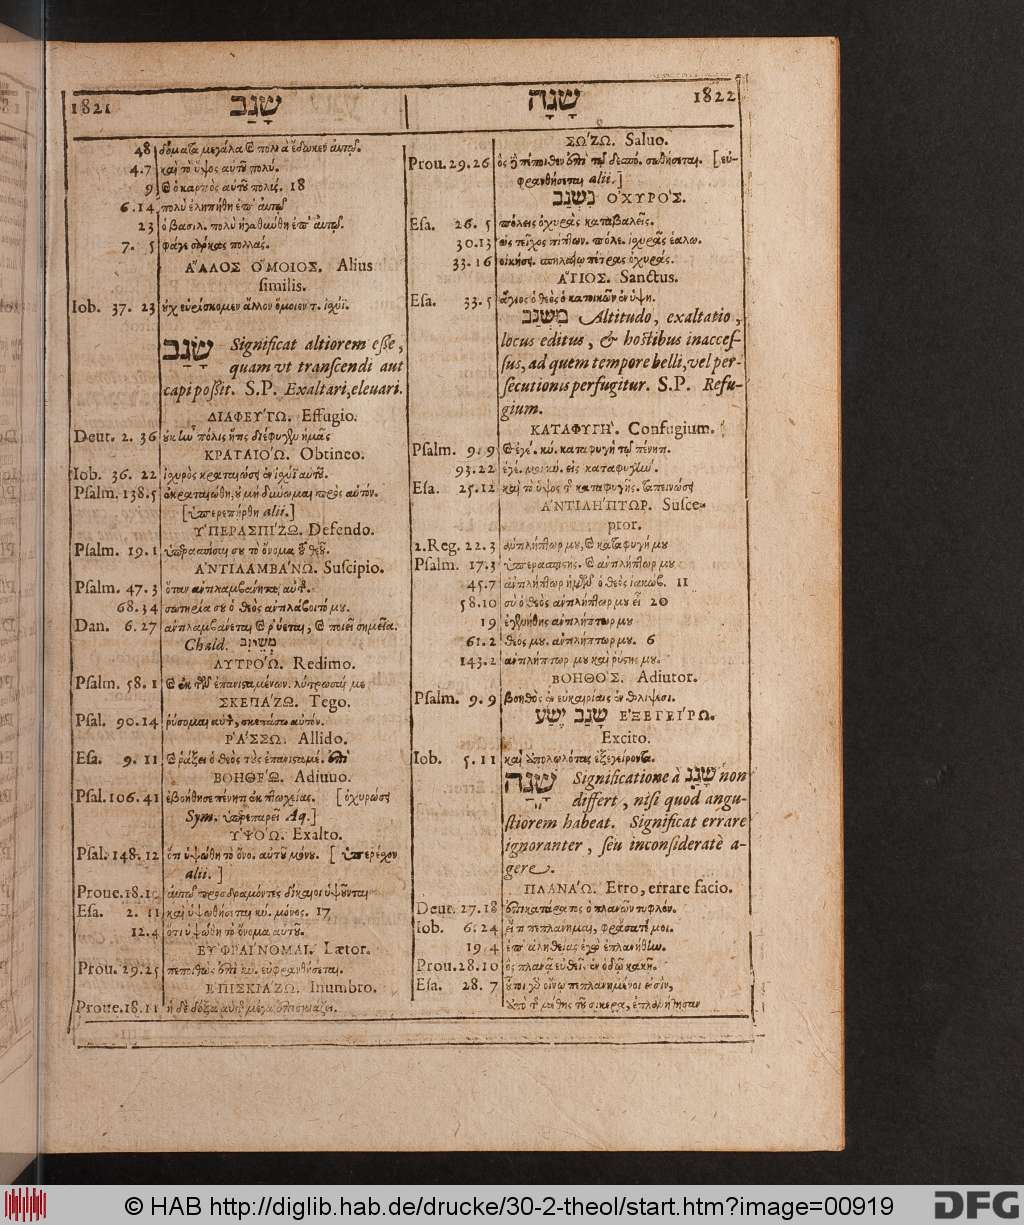 1821 שָׂגַב
שָׁגָה 1822
48 δόματα μεγάλα ϗ πολλὰ ἔδωκεν αὐτῷ.
4.7 καὶ τὸ ὕψος αὐτοῦ πολύ.
9 ϗ ὁ καρπὸς αὐτοῦ πολύς. 18
6.14 πολὺ ἐλυπήθη ἐπ' αὐτῷ
23 ὁ βασιλ. πολὺ ἠγαθύνθη ἐπ' αὐτῷ.
7. 5 φάγε σάρκας πολλάς.
ἌΛΛΟΣ ὍΜΟΙΟΣ. Alius
similis.
Iob. 37. 23 οὐχ εὑρίσκομεν ἄλλον ὅμοιον τ. ἰσχύϊ.
שָׂגַב Significat altiorem esse,
quam vt transcendi aut
capi possit. S.P. Exaltari, eleuari.
ΔΙΑΦΕΎΓΩ. Effugio.
Deut. 2. 36 οὐκ ἦν πόλις ἥτις διέφυγεν ἡμᾶς
ΚΡΑΤΑΙΌΩ. Obtineo.
Iob. 36. 22 ἰσχυρὸς κραταιώσει ἐν ἰσχύϊ αὐτοῦ.
Psalm. 138.5 ἐκραταιώθη, οὐ μὴ δύνωμαι πρὸς αὐτόν.
[ὑπερεπήρθη alii.]
ὙΠΕΡΑΣΠΊΖΩ. Defendo.
Psalm. 19. 1 ὑπερασπίσαι σου τὸ ὄνομα τοῦ θεοῦ.
ἈΝΤΙΛΑΜΒΆΝΩ. Suscipio.
Psalm. 47. 3 ὅταν ἀντιλαμβάνηται αὐτῆς.
68.34 σωτηρία σου ὁ θεὸς ἀντιλάβοιτό μου.
Dan. 6. 27 ἀντιλαμβάνεται ϗ ῥύεται, ϗ ποιεῖ σημεῖα.
Chald. משיזיב
ΛΥΤΡΌΩ. Redimo.
Psalm. 58. 1 ϗ ἐκ τῶν ἐπανισταμένων. λύτρωσαί με
ΣΚΕΠΆΖΩ. Tego.
Psal. 90.14 ῥύσομαι αὐτὸν, σκεπάσω αὐτόν.
ῬΆΣΣΩ. Allido.
Esa. 9. 11 ϗ ῥάξει ὁ θεὸς τοὺς ἐπανισταμέ. ἐπὶ
ΒΟΗΘΈΩ. Adiuuo.
Psal. 106. 41 ἐβοήθησε πένητι ἐκ πτωχείας. [ὀχυρώσει
Sym. ὑπερεπαρεῖ Aq.]
ὙΨΌΩ. Exalto.
Psal. 148. 12 ὅτι ὑψώθη τὸ ὄνο. αὐτοῦ μόνου. [ὑπερέχον
alii. ]
Proue.18.10 αὐτῷ προσδραμόντες δίκαιοι ὑψοῦνται
Esa. 2. 11 καὶ ὑψωθήσεται κύ. μόνος. 17
12.4 ὅτι ὑψώθη τὸ ὄνομα αὐτοῦ.
ΕΥ̓ΦΡΑΊΝΟΜΑΙ. Lætor.
Prou. 29.25 πεποιθὼς ἐπὶ κύ. εὐφρανθήσεται.
ἘΠΙΣΚΙΆΖΩ. Inumbro.
Proue.18.11 ἡ δὲ δόξα αὐτῆς μέγα ἐπισκιάζει.
ΣΏΖΩ. Saluo.
Prou. 29. 26 ὃς δὲ πέποιθεν ἐπὶ τῷ δεσπό. σωθήσεται. [εὐ-
φρανθήσεται alii.]
נִשְׂגַּב ὈΧΥΡΌΣ.
Esa. 26. 5 πόλεις ὀχυρὰς καταβαλεῖς.
30.13 ὡς τεῖχος πίπτων. πόλε. ὀχυρᾶς ἑαλω.
33.16 οἰκήσει. σπηλαίῳ πέτρας ὀχυρᾶς.
ἍΓΙΟΣ. Sanctus.
Esa. 33. 5 ἅγιος ὁ θεὸς ὁ κατοικῶν ἐν ὑψη.
מִשְׂגַּב Altitudo, exaltatio,
locus editus, & hostibus inacces-
sus, ad quem tempore belli, vel per-
secutionis perfugitur. S.P. Refu-
gium.
ΚΑΤΑΦΥΓΉ. Confugium.
Psalm. 9. 9 ϗ ἐγέ. κύ. καταφυγὴ τῷ πένητι.
93.22 ἐγέ. μοι κύ. εἰς καταφυγήν.
Esa. 25.12 καὶ τὸ ὕψος τῆς καταφυγῆς. ταπεινώσει
ἈΝΤΙΛΉΠΤΩΡ. Susce-
ptor.
2.Reg. 22. 3 ἀντιλήπτωρ μου, ϗ καταφυγή μου
Psalm. 17.3 ὑπερασπιστής. ϗ ἀντιλήπτωρ μου
45.7 ἀντιλήπτωρ ἡμῶν ὁ θεὸς ἰακωβ. 11
58.10 σὺ ὁ θεὸς ἀντιλήπτωρ μου εἶ 20
19 ἐγενήθης ἀντιλήπτωρ μου
61.2 θεός μου. ἀντιλήπτωρ μου. 6
143.2 ἀντιλήπτωρ μου καὶ ῥύστης μου.
ΒΟΗΘΌΣ. Adiutor.
Psalm. 9. 9 βοηθὸς ἐν εὐκαιρίαις ἐν θλίψεσι.
שָׂגַב יֶשַׁע ἘΞΕΓΕΊΡΩ.
Excito.
Iob. 5.11 καὶ ἀπολωλότας ἐξεγείροντα.
שָׁגָה Significatione à שָׁגַג non
differt, nisi quod angu-
stiorem habeat. Significat errare
ignoranter, seu inconsideratè a-
gere.
ΠΛΑΝΆΩ. Erro, errare facio.
Deut. 27.18 ἐπικατάρατος ὁ πλανῶν τυφλόν.
Iob. 6. 24 εἴ τι πεπλάνημαι, φράσατέ μοι.
19. 4 ἐπ' ἀληθείας ἐγὼ ἐπλανήθην.
Prou. 28.10 ὃς πλανᾷ εὐθεῖ. ἐν ὁδῷ κακῇ.
Esa. 28. 7 οὗτοι γὰρ οἴνῳ πεπλανημένοι εἰσίν,
ὑπὸ τῆς μέθης τοῦ σίκερα, ἐπλανήθησαν
© HAB http://diglib.hab.de/drucke/30-2-theol/start.htm?image=00919
DFG